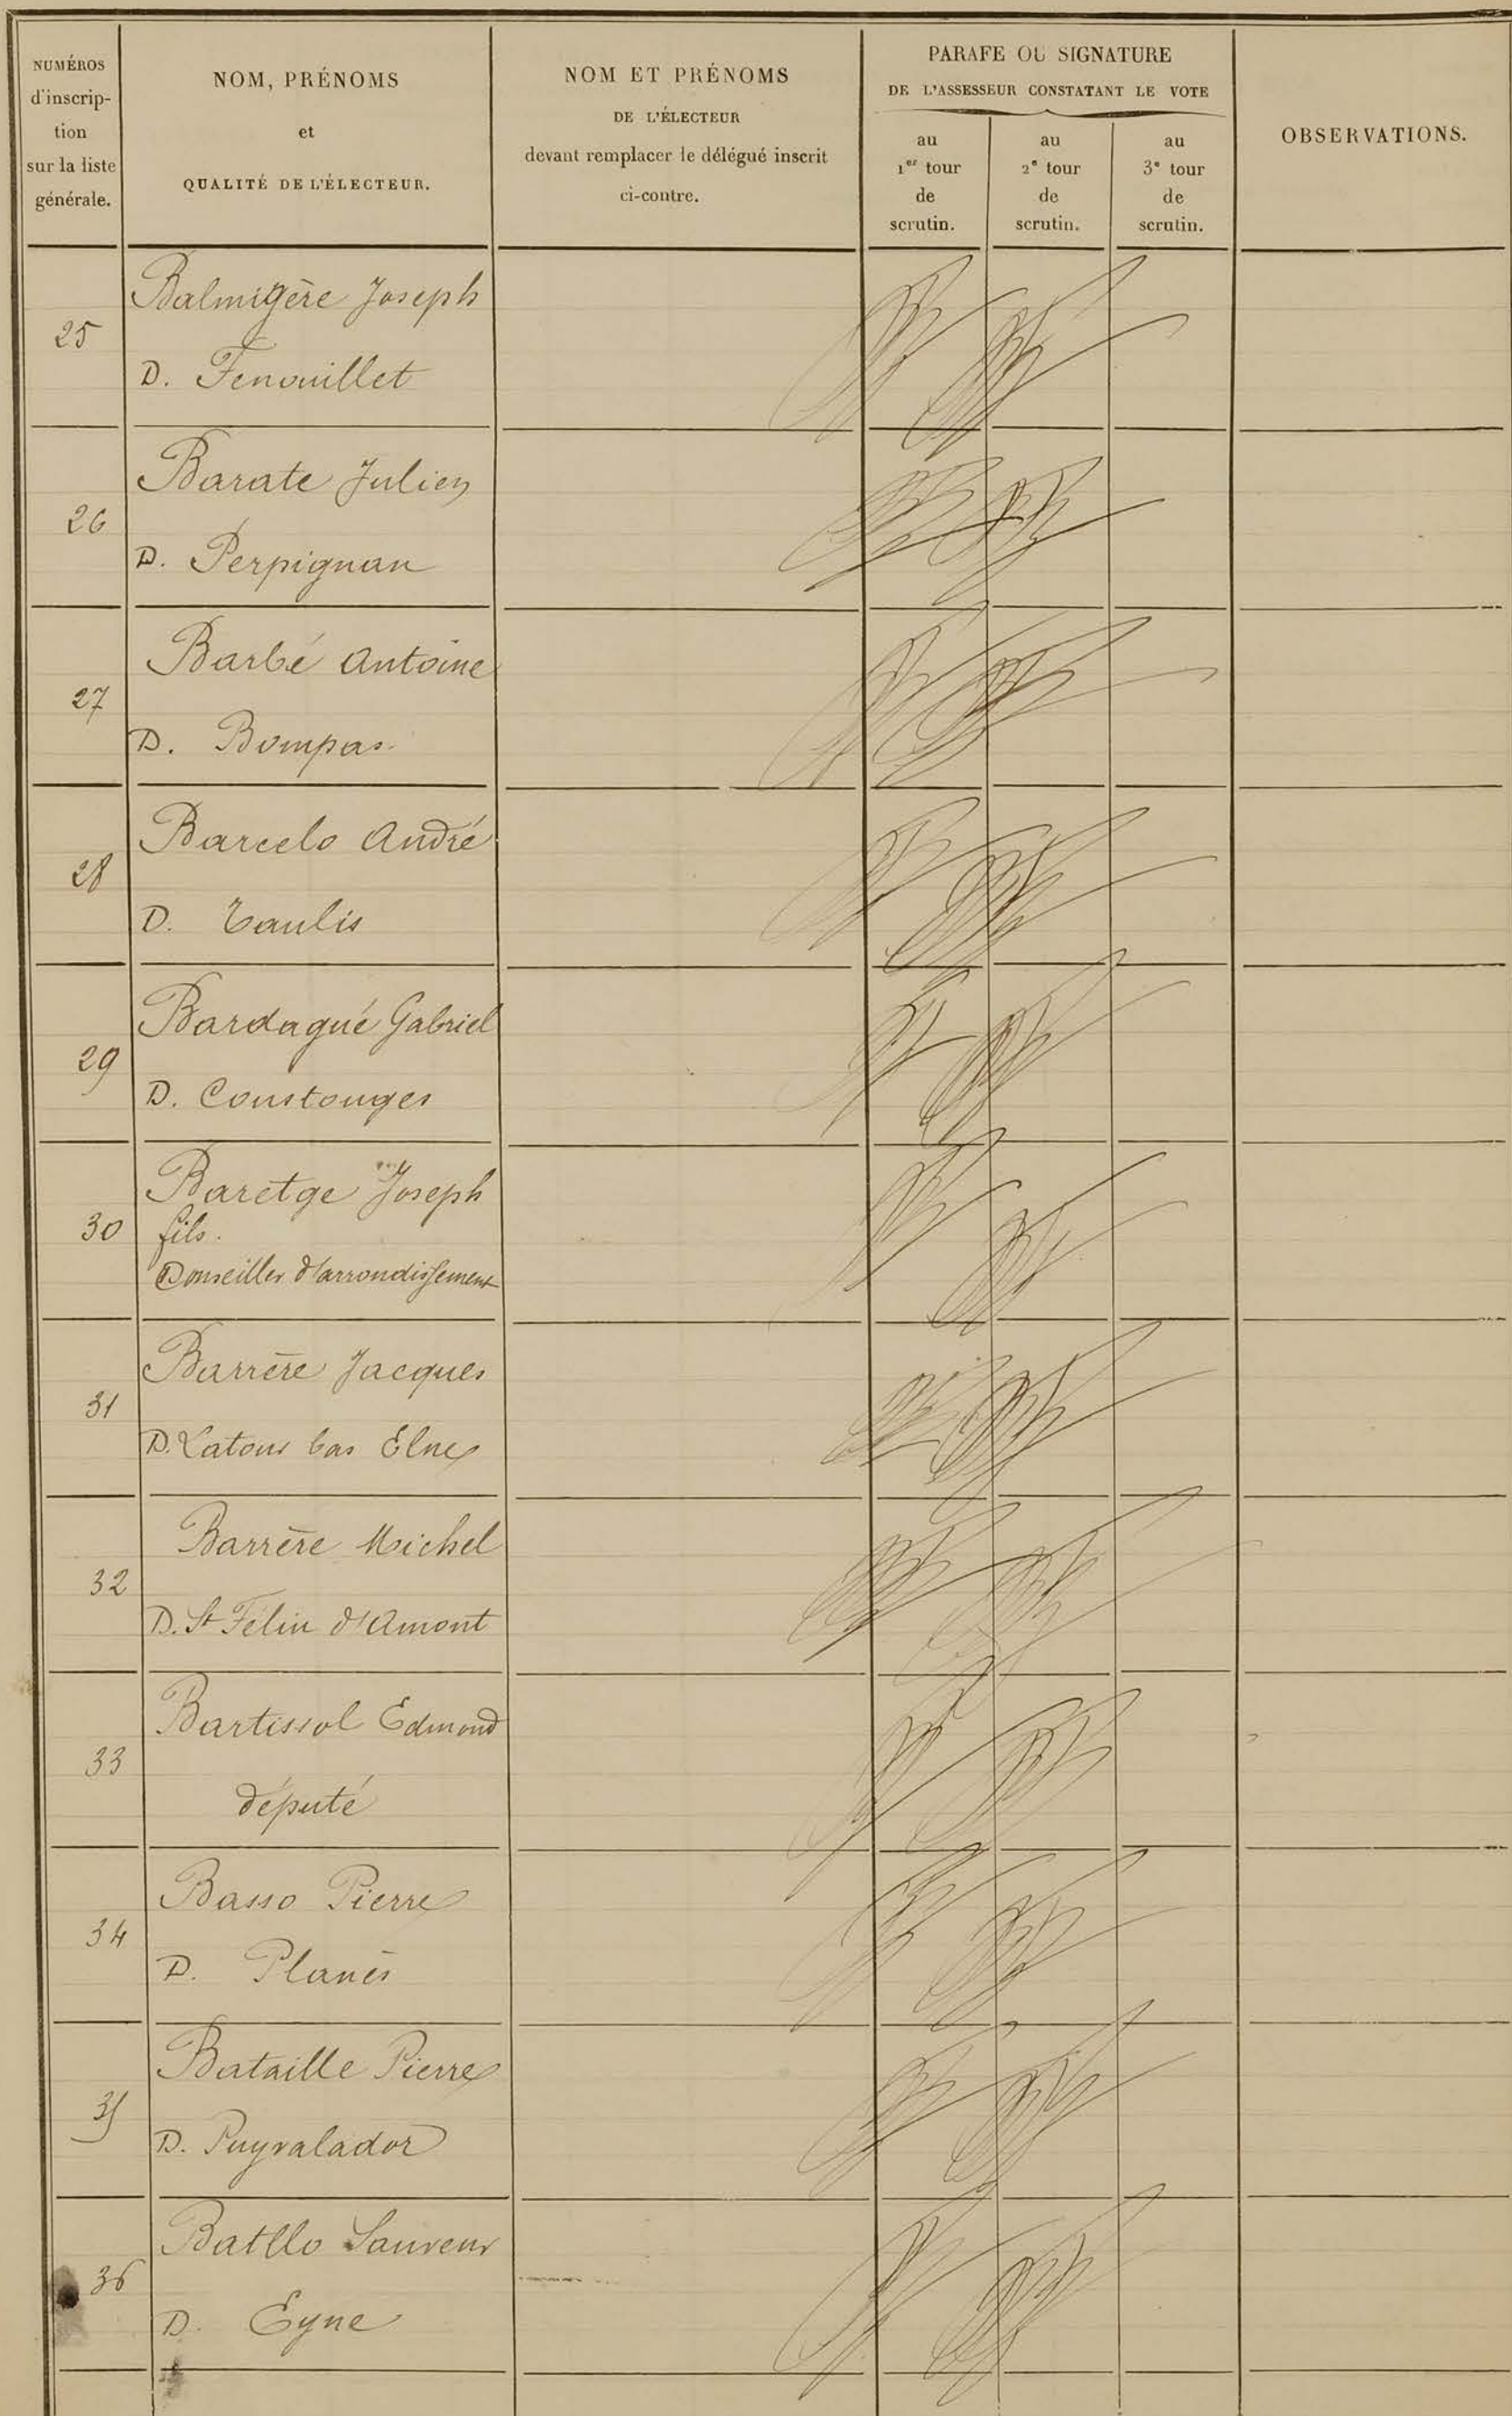 NUMÉROS
d'inscrip-
tion
sur la liste
générale.
NOM, PRÉNOMS
et
QUALITÉ DE L'ÉLECTEUR.
NOM ET PRÉNOMS
DE L'ÉLECTEUR
devant remplacer le délégué inscrit
ci-contre.
PARAFE OU SIGNATURE
DE L'ASSESSEUR CONSTATANT LE VOTE
au
1er tour
de
scrutin.
au
2e tour
de
scrutin.
au
3e tour
de
scrutin.
OBSERVATIONS.
25
Balmigère Joseph
D. Fenouillet
26
Barate Julien
D. Perpignan
27
Barbé Antoine
D. Bompas
28
Barcelo André
D. Taulis
29
Bardagué Gabriel
D. Coustouges
30
Baretge Joseph
fils.
Conseiller d'arrondissement
31
Barrère Jacques
D. Latour bas Elne
32
Barrère Michel
D. St Féliu d'Amont
33
Bartissol Edmond
député
34
Basso Pierre
D. Planès
35
Bataille Pierre
D. Puyvalador
36
Batllo Sauveur
D. Eyne